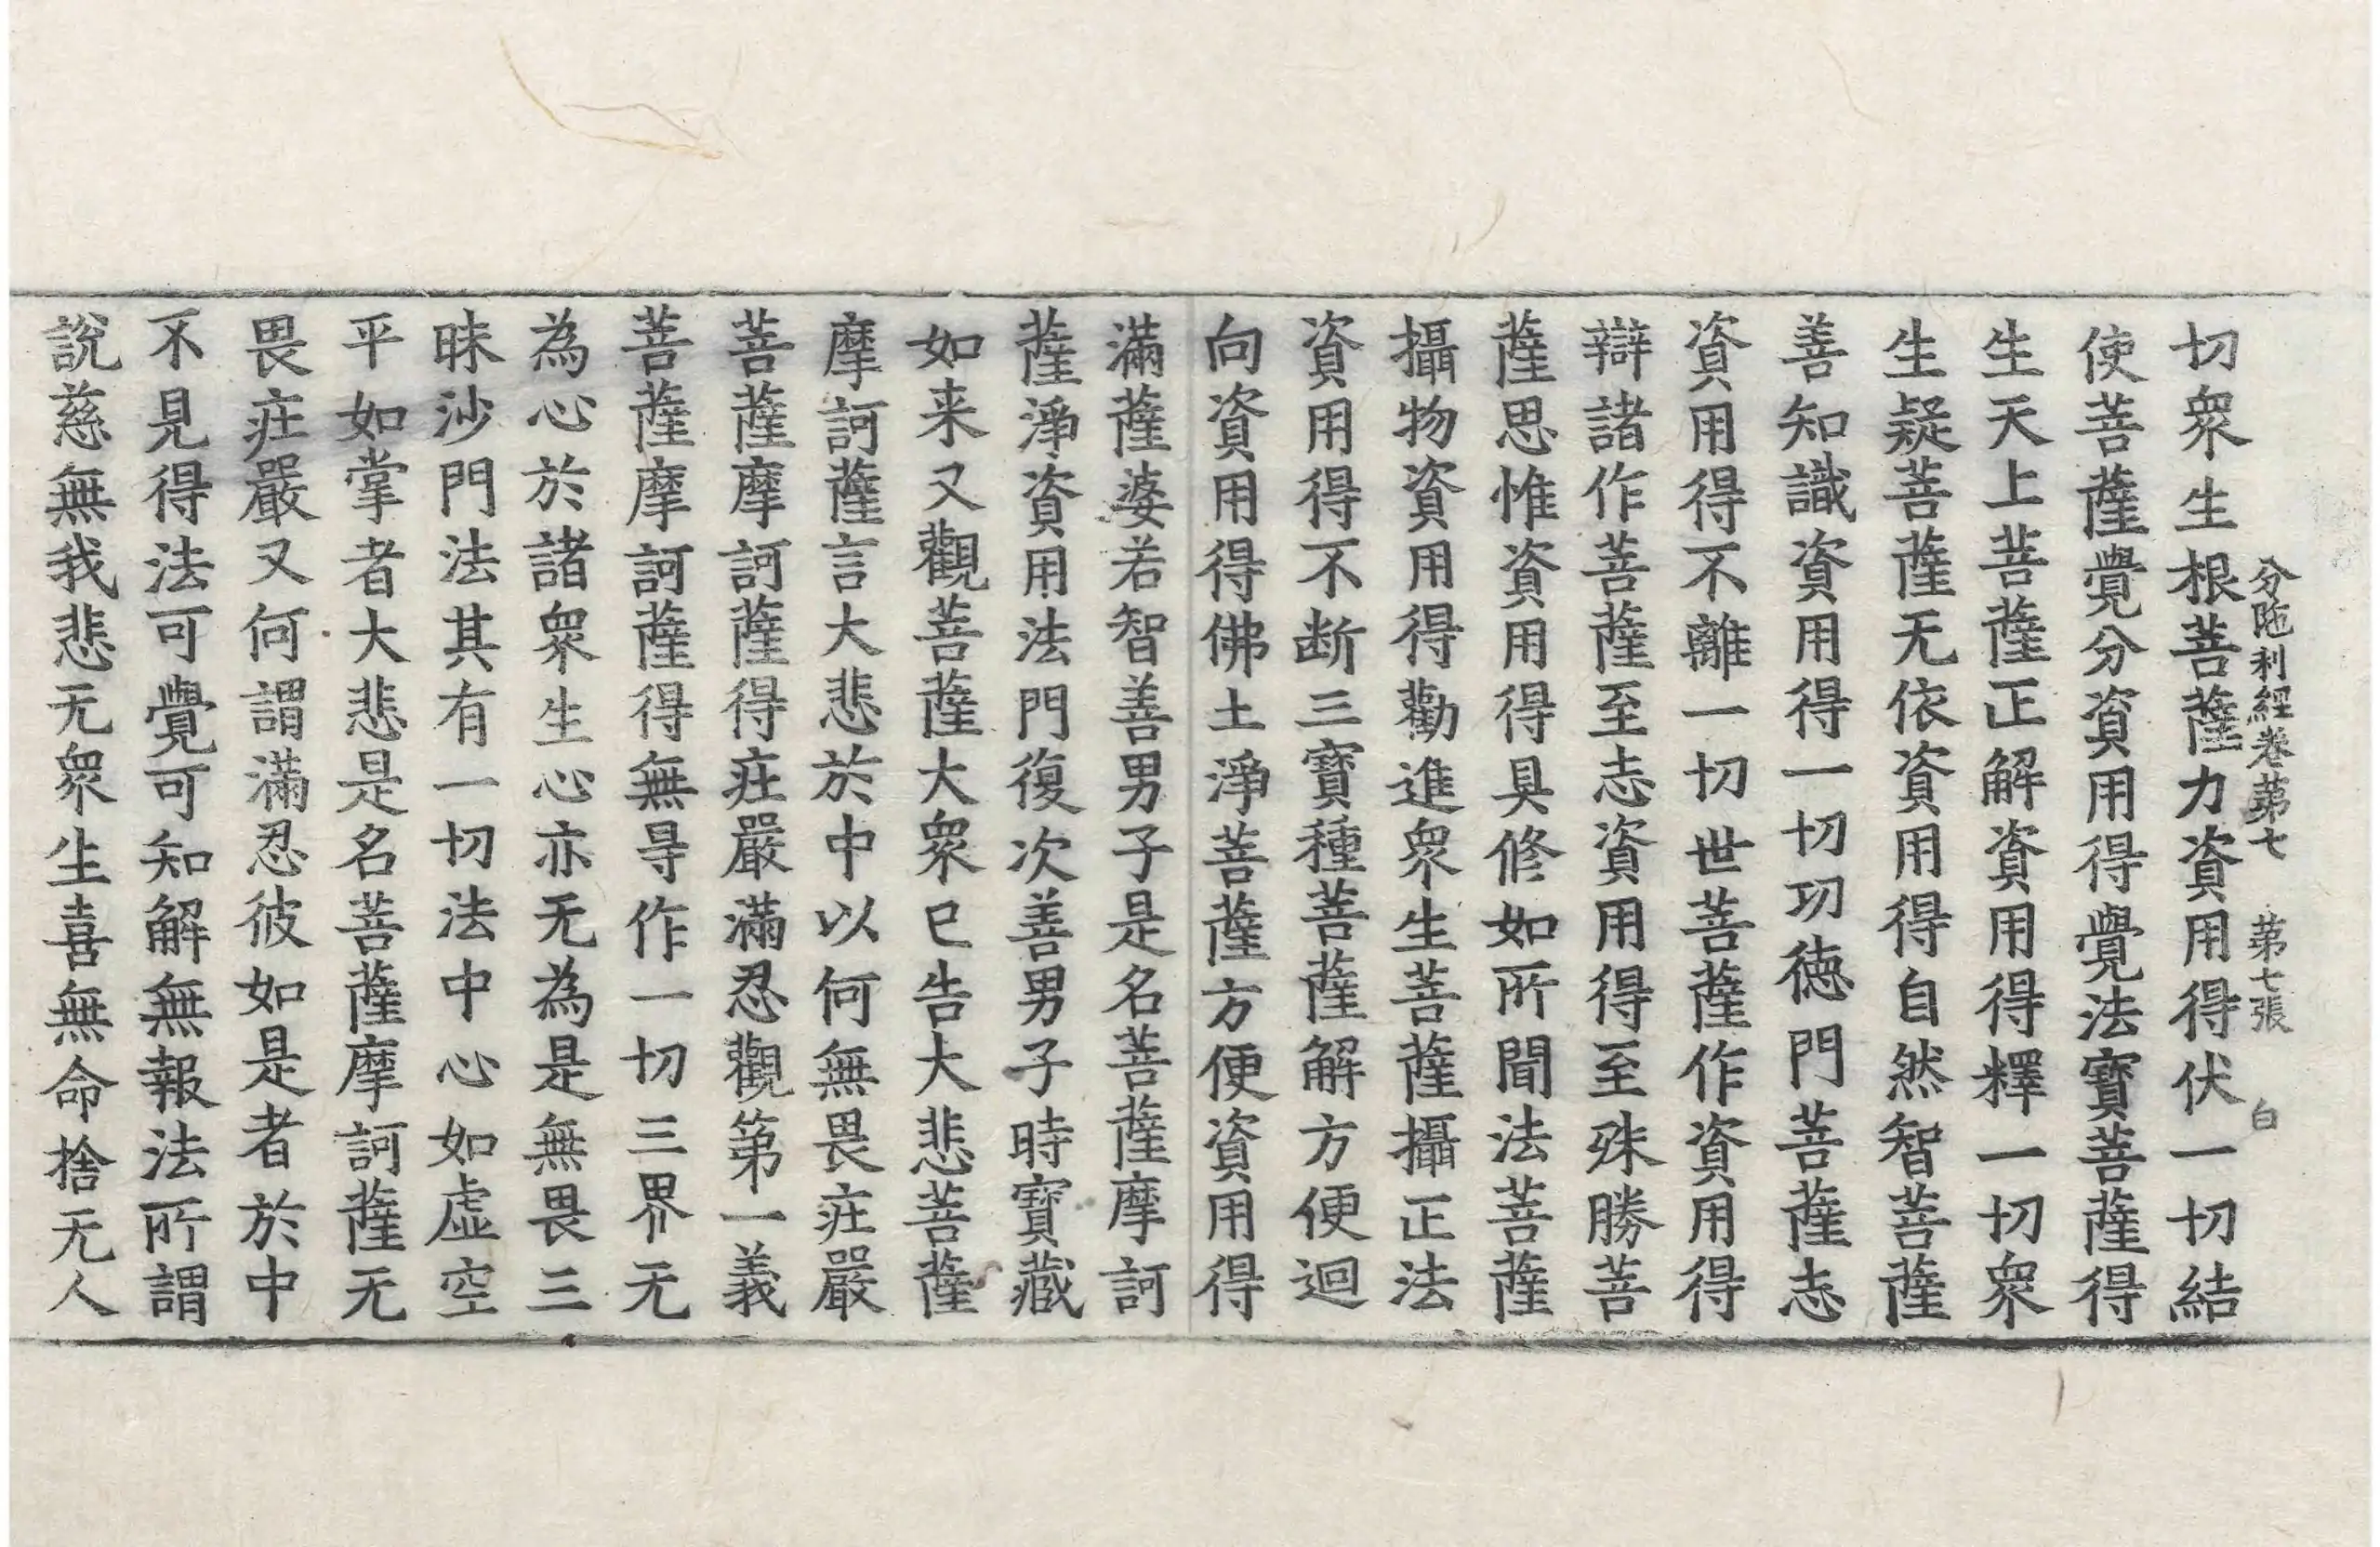 分陁利經卷苐七 苐七張 白
切衆生根菩薩力資用得伏一切結
使菩薩覺分資用得覺法寶菩薩得
生天上菩薩正解資用得釋一切衆
生疑菩薩无依資用得自然智菩薩
善知識資用得一切功德門菩薩志
資用得不離一切世菩薩作資用得
辯諸作菩薩至志資用得至殊勝菩
薩思惟資用得具修如所聞法菩薩
攝物資用得勸進衆生菩薩攝正法
資用得不断三寶種菩薩解方便迴
向資用得佛土淨菩薩方便資用得
滿薩婆若智善男子是名菩薩摩訶
薩淨資用法門復次善男子時寶藏
如来又觀菩薩大衆已告大悲菩薩
摩訶薩言大悲於中以何無畏莊嚴
菩薩摩訶薩得莊嚴滿忍觀第一義
菩薩摩訶薩得無㝵作一切三界无
為心於諸衆生心亦无為是無畏三
昧沙門法其有一切法中心如虛空
平如掌者大悲是名菩薩摩訶薩无
畏莊嚴又何謂滿忍彼如是者於中
不見得法可覺可知解無報法所謂
說慈無我悲无衆生喜無命捨无人